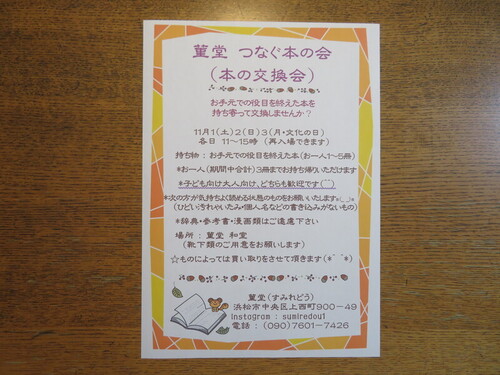 菫堂 つなぐ本の会
(本の交換会)
お手元での役目を終えた本を
持ち寄って交換しませんか?
11月1(土)2(日)3(月・文化の日)
各日 11〜15時 (再入場できます)
持ち物:お手元での役目を終えた本(お一人1〜5冊)
*お一人(期間中合計)3冊までお持ち帰りいただけます
*子ども向け大人向け、どちらも歓迎です(^^)
*次の方が気持ちよく読める状態のものをお願いいたします*(_ _)*
(ひどい汚れやいたみ・個人名などの書き込みがないもの)
*辞典・参考書・漫画類はご遠慮下さい
場所:菫堂 和室
(靴下類のご用意をお願いします)
☆ものによっては買い取りをさせて頂きます(*^^*)
菫堂(すみれどう)
浜松市中央区上西町900-49
Instagram : sumiredou1
電話:(090)7601-7426